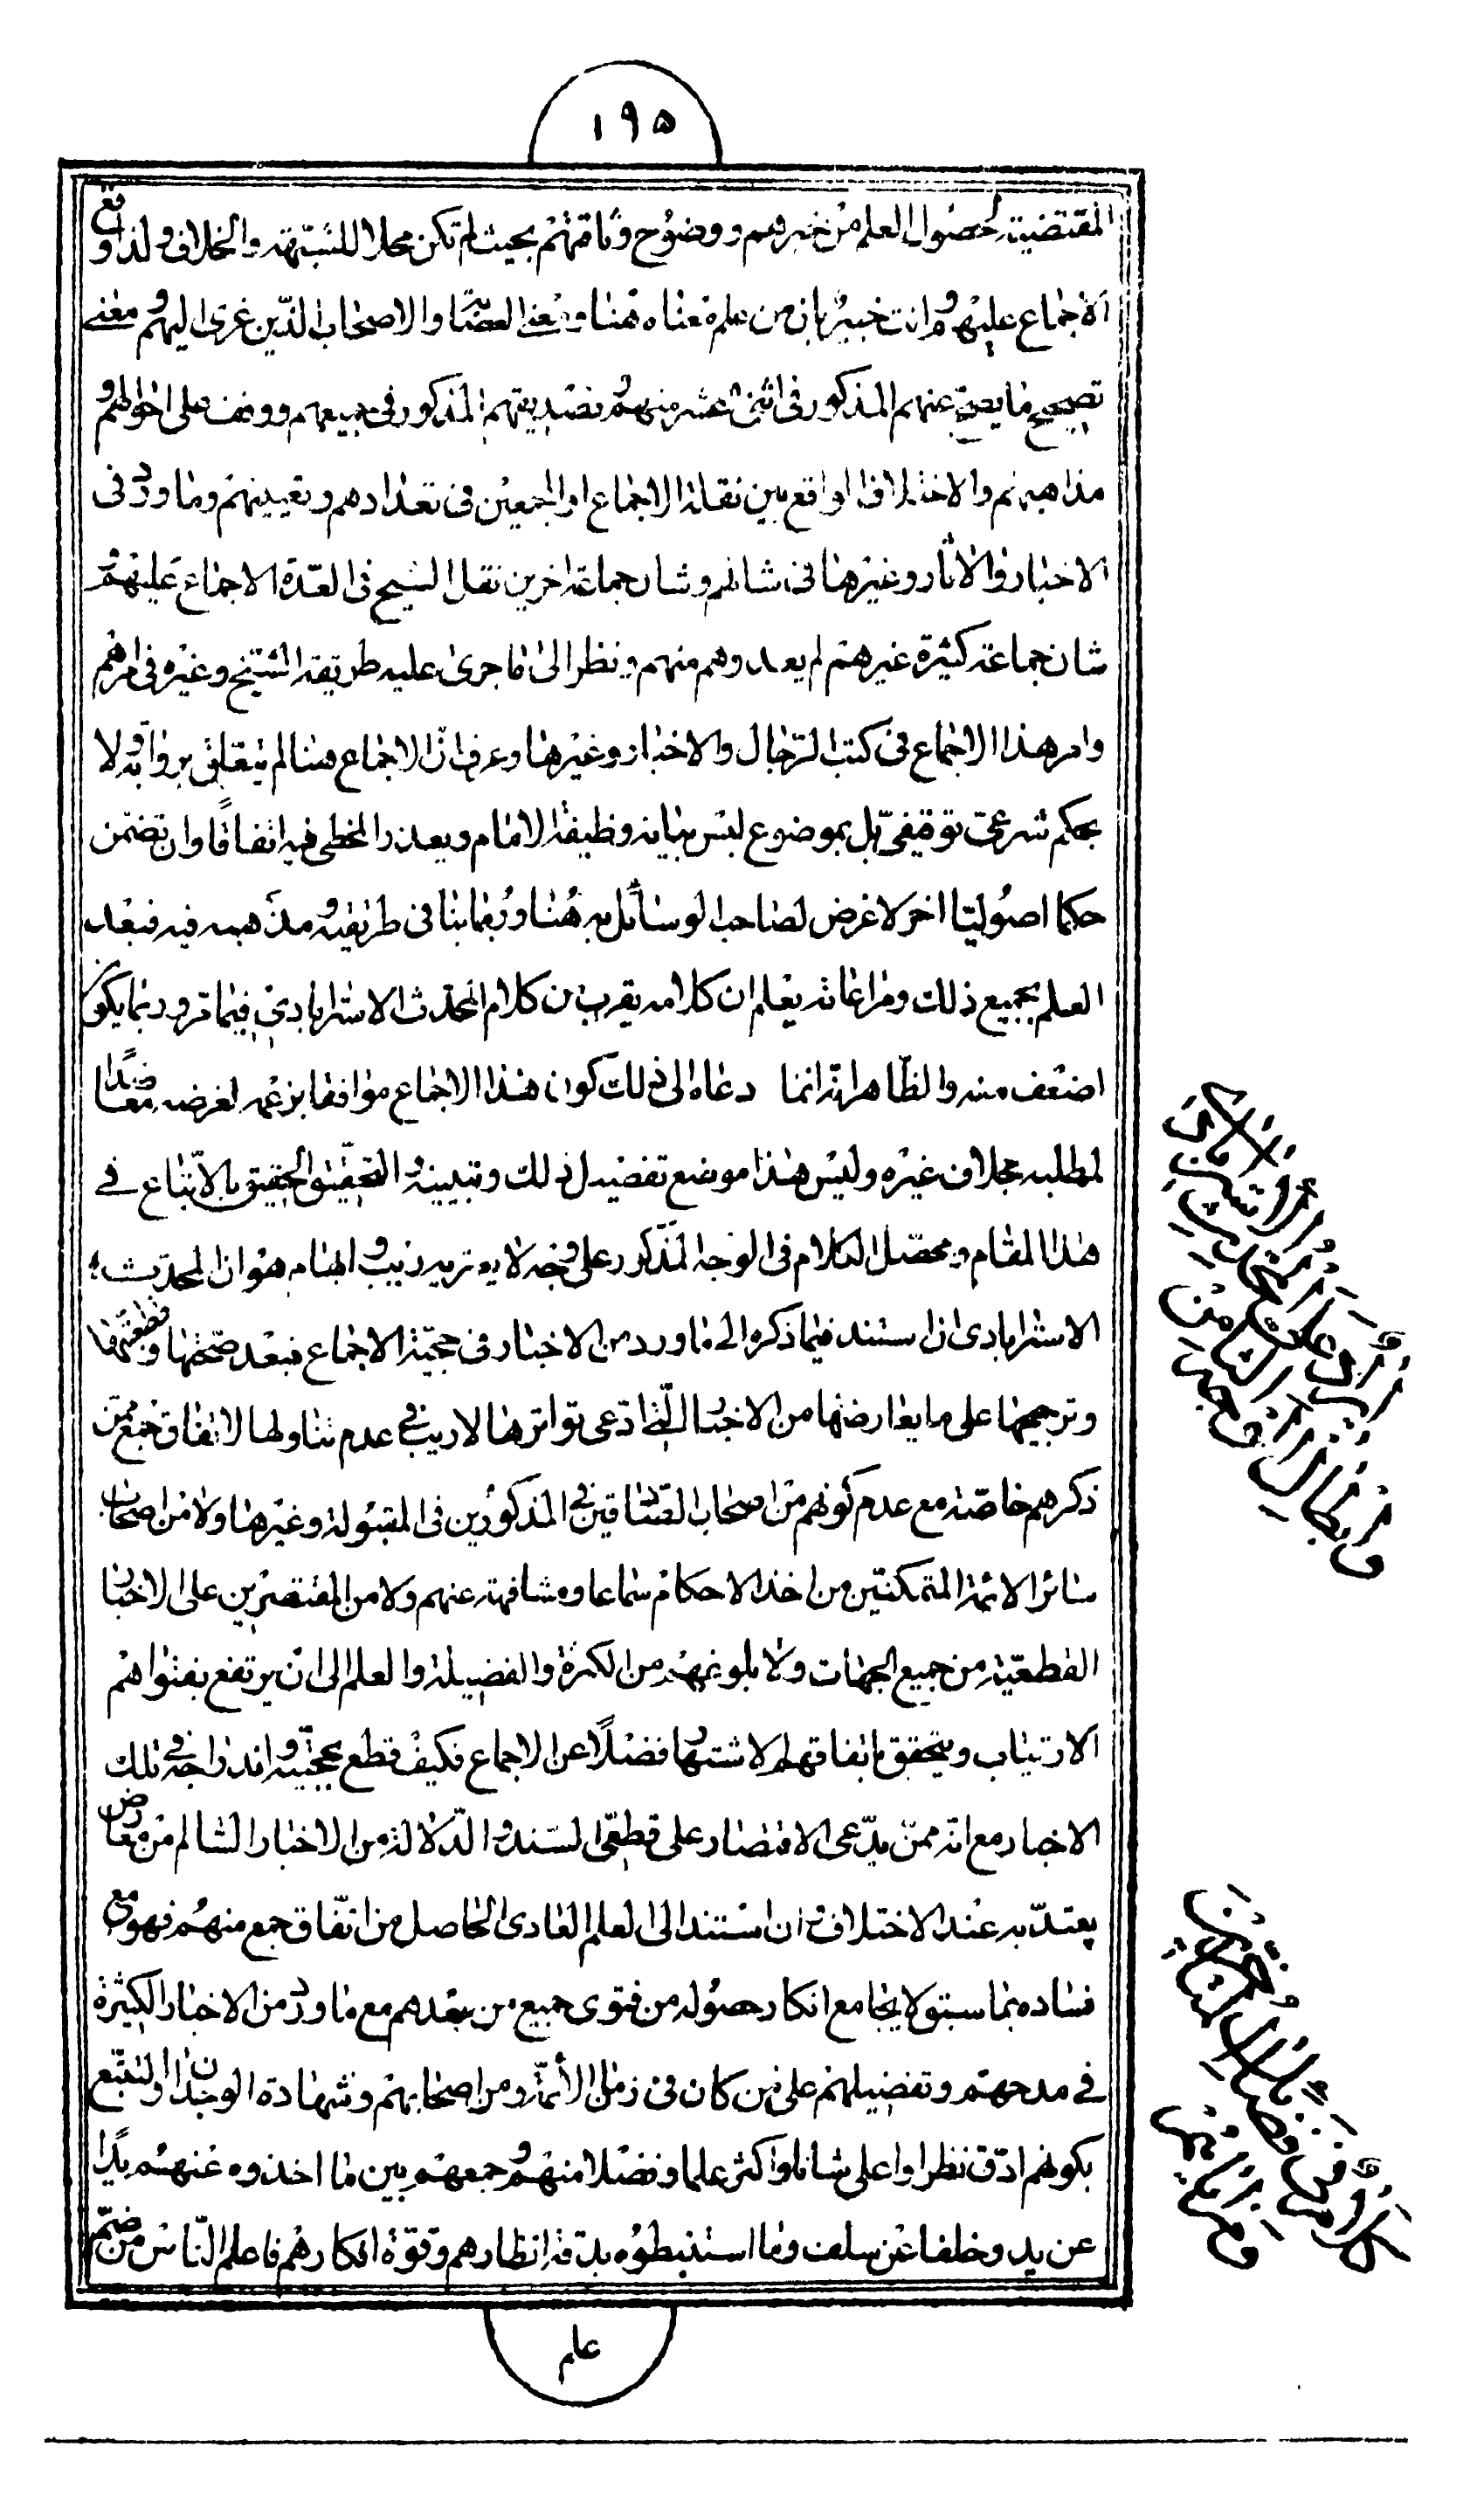 ١٩٥
المقتضية لحصول العلم من خبرهم ووضوح وثاقتهم بحيث لم تكن محلا للشبهة والخلاف ولذا وقع
الاجماع عليهم وانت خبير بان من علم معناه هنا ومعنى العصابة والاصحاب الذين عزى اليهم ومعنى
تصحيح ما يصح عنهم المذكور في اثنى عشر منهم وتصديقهم المذكور في جميعهم ووقف على احوالهم و
مذاهبهم والاختلاف الواقع بين نقلة الاجماع او المجمعين في تعدادهم وتعيينهم وما ورد في
الاخبار والاثار وغيرها في شانهم وشان جماعة اخرين نقل الشيخ في العدة الاجماع عليهم و
شان جماعة كثيرة غيرهم لم يعدوهم منهم ونظر الى ما جرى عليه طريقة الشيخ وغيره في امرهم
وامر هذا الاجماع في كتب الرجال والاخبار وغيرها وعرف ان الاجماع هنا لم يتعلق برواية ولا
بحكم شرعي توقيفي بل بموضوع ليس بيانه وظيفة الامام ويعذر المخطى فيه اتفاقا وان تضمن
حكما اصوليا اخر لا غرض لصاحب الوسائل به هنا وربما ينافى طريقته ومذهبه فيه فبعد
العلم بجميع ذلك ومراعاته يعلم ان كلامه يقرب من كلام المحدث الاسترابادي فيما مر وربما يكون
اضعف منه والظاهر انه انما دعاه الى ذلك كون هذا الاجماع موافقا بزعمه لغرضه معاضدا
لمطلبه بخلاف غيره وليس هذا موضع تفصيل ذلك وتبيينه والتحقيق الحقيق بالاتباع في
هذا المقام ومحصل الكلام في الوجه المذكور على وجه لا يعتريه ريب وابهام هو ان المحدث
الاسترابادي ان استند فيما ذكره الى ما ورد من الاخبار في حجية الاجماع فبعد صحتها وقطعيتها
وترجيحها على ما يعارضها من الاخبار التي ادعى تواترها لا ريب في عدم تناولها لاتفاق جمع ممن
ذكرهم خاصة مع عدم كونهم من اصحاب الصادقين المذكورين في المقبولة وغيرها ولا من اصحاب
سائر الائمة المتمكنين من اخذ الاحكام سماعا ومشافهة عنهم ولا من المقتصرين على الاخبار
القطعية من جميع الجهات ولا بلوغهم من الكثرة والفضيلة والعلم الى ان يرتفع بفتواهم
الارتياب ويتحقق باتفاقهم الاشتهار فضلا عن الاجماع فكيف قطع بحجيته واندراجه في تلك
الاخبار مع انه ممن يدعى الاقتصار على قطعى السند والدلالة من الاخبار السالم من معارض
يعتد به عند الاختلاف وان استند الى العلم العادى الحاصل من اتفاق جمع منهم فهو مع
فساده بما سبق لا يجامع انكار حصوله من فتوى جميع من بعدهم مع ما ورد من الاخبار الكثيرة
في مدحهم وتفضيلهم على من كان في زمن الأئمة ومن اصحابهم وشهادة الوجدان والتتبع
بكونهم ادق نظرا واعلى شانا واكثر علما وفضلا منهم وجمعهم بين ما اخذوه عنهم يدا
عن يد وخلفا عن سلف وما استنبطوه بدقة انظارهم وقوة افكارهم فاعلم الناس من ضم
علم